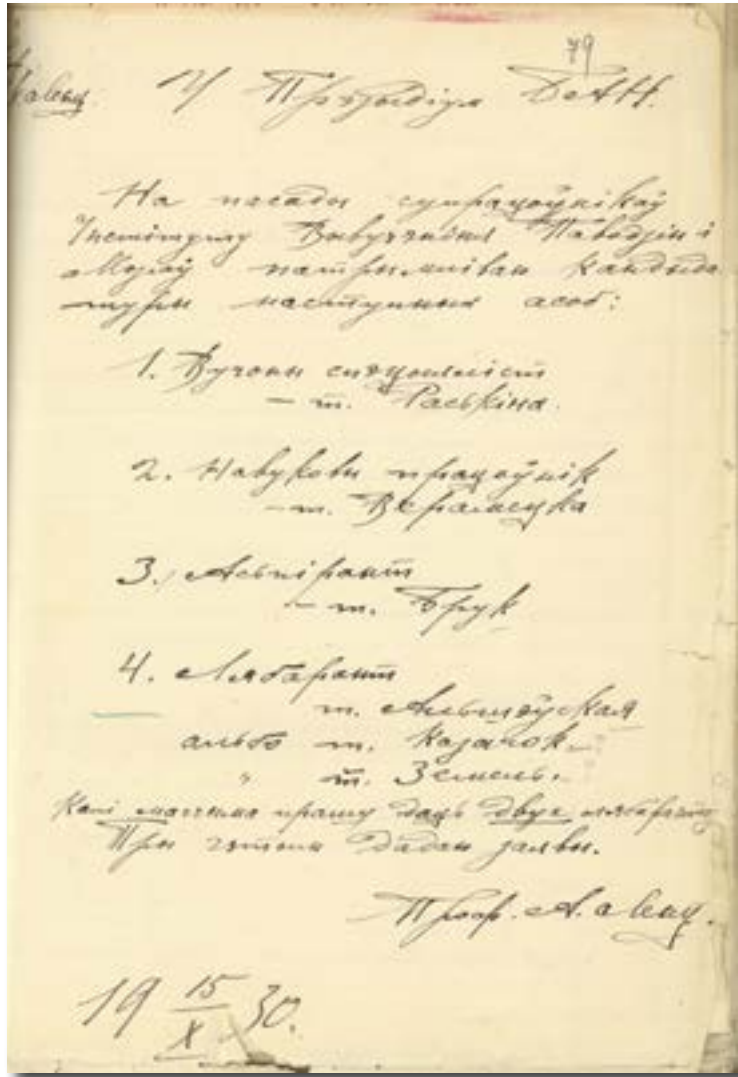 79
У Прэзыдіум БелАН.
На пасады супрацоўнікаў
Інстітуту Вывучэньня Паводзін і
Мозгу патрымліваю кандыда
туры наступных асоб:
1. Вучоны спэцыяліст
– т. Раськіна.
2. Навуковы працоўнік
– т. Верамецка
3. Асьпірант
– т. Брук
4. Лябарант
т.
альбо т. Казачок
" т. Земель.
Калі магчыма прашу даць двух лябарант
Пры гэтым дадаю заявы.
Проф. А.
19 15/X 30.